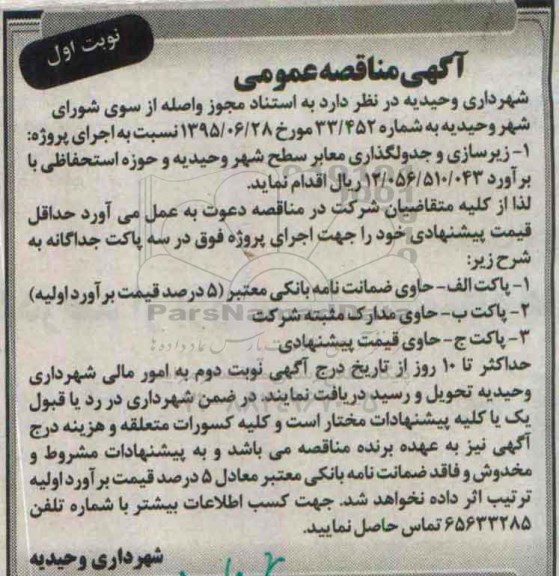 نوبت اول
آگهی مناقصه عمومی
شهرداری وحیدیه در نظر دارد به استناد مجوز واصله از سوی شورای
شهر وحیدیه به شماره ۳۳/۴۵۲ مورخ ۱۳۹۵/۰۶/۲۸ نسبت به اجرای پروژه:
۱- زیرسازی و جدولگذاری معابر سطح شهر وحیدیه و حوزه استحفاظی با
برآورد ۱۲/۰۵۶/۵۱۰/۰۴۳ ریال اقدام نماید.
لذا از کلیه متقاضیان شرکت در مناقصه دعوت به عمل می آورد حداقل
قیمت پیشنهادی خود را جهت اجرای پروژه فوق در سه پاکت جداگانه به
شرح زیر:
۱- پاکت الف- حاوی ضمانت نامه بانکی معتبر (۵ درصد قیمت برآورد اولیه)
۲- پاکت ب- حاوی مدارک مثبته شرکت
ParsNamadData
۳- پاکت ج- حاوی قیمت پیشنهادی
حداکثر تا ۱۰ روز از تاریخ درج آگهی نوبت دوم به امور مالی شهرداری
وحیدیه تحویل و رسید دریافت نمایند. در ضمن شهرداری در رد یا قبول
یک یا کلیه پیشنهادات مختار است و کلیه کسورات متعلقه و هزینه درج
آگهی نیز به عهده برنده مناقصه می باشد و به پیشنهادات مشروط و
مخدوش و فاقد ضمانت نامه بانکی معتبر معادل ۵ درصد قیمت برآورد اولیه
ترتیب اثر داده نخواهد شد. جهت کسب اطلاعات بیشتر با شماره تلفن
۶۵۶۳۳۲۸۵ تماس حاصل نمایید.
شهرداری وحیدیه